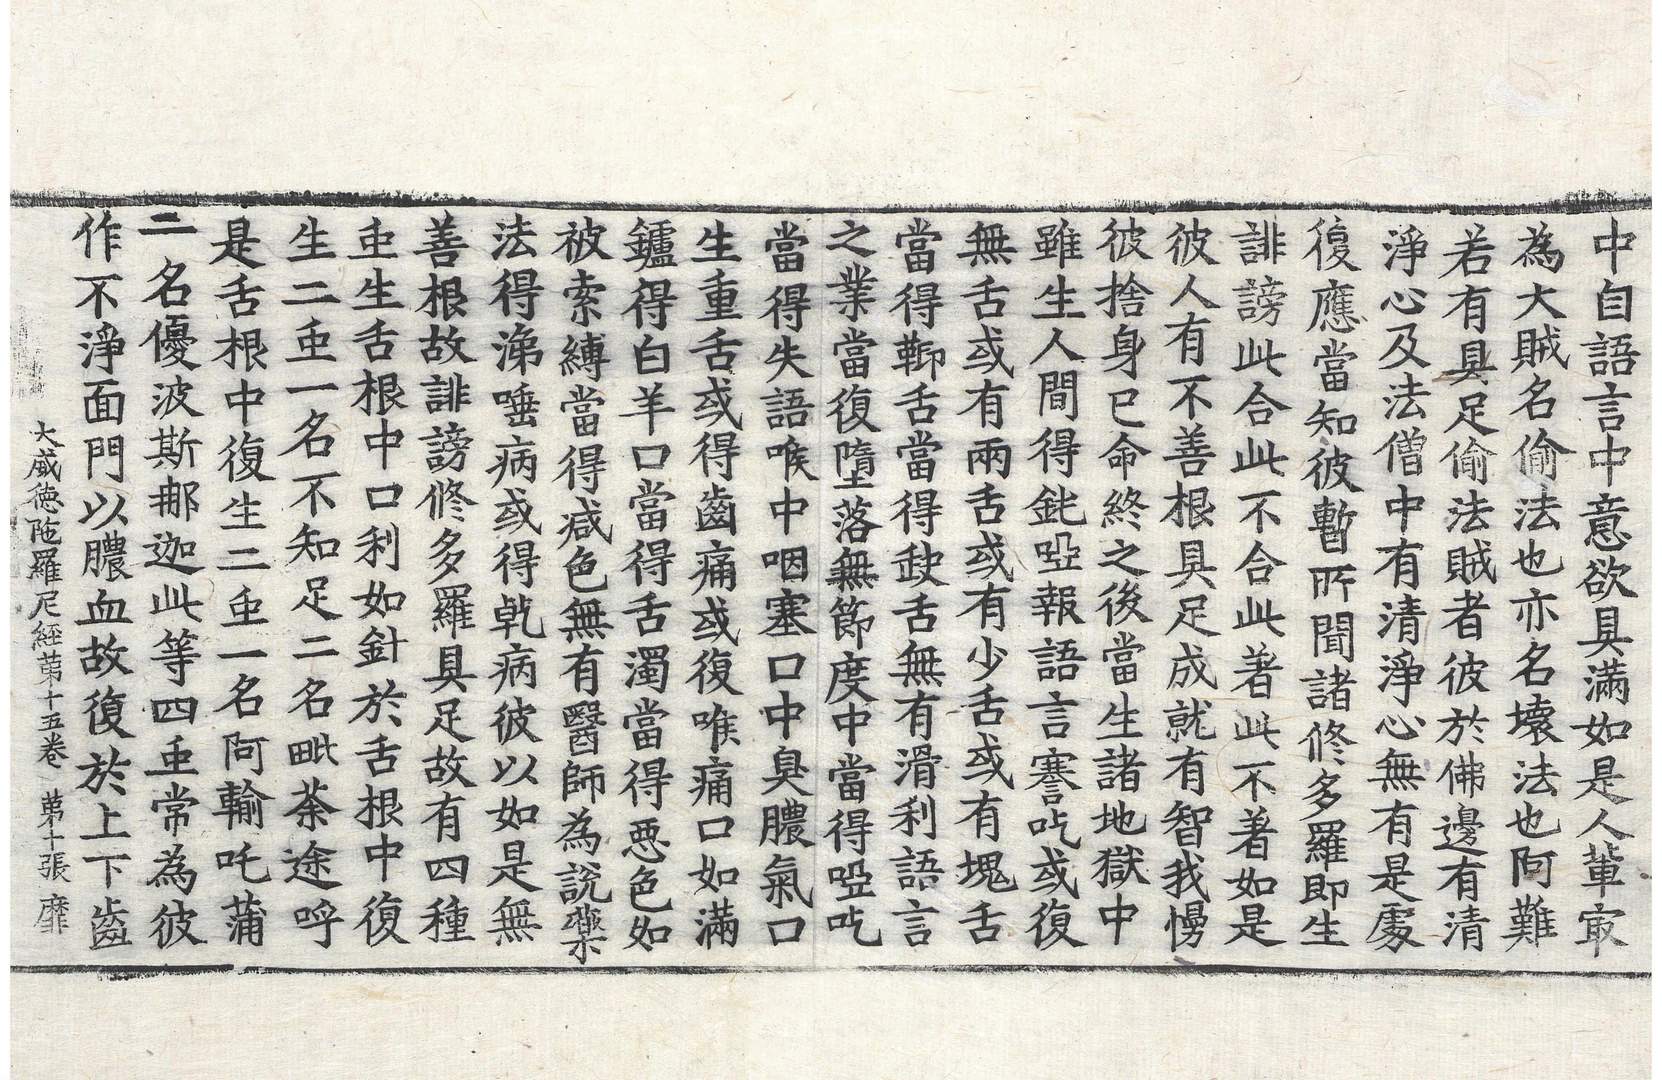 中自語言中意欲具滿如是人輩㝡
為大賊名偷法也亦名壞法也阿難
若有具足偷法賊者彼於佛邊有清
淨心及法僧中有清淨心無有是處
復應當知彼暫所聞諸修多羅即生
誹謗此合此不合此著此不著如是
彼人有不善根具足成就有智我慢
彼捨身已命終之後當生諸地獄中
雖生人間得鈋啞報語言謇吃或復
無舌或有兩舌或有少舌或有塊舌
當得䩕舌當得缺舌無有滑利語言
之業當復墮落無節度中當得啞吃
當得失語喉中咽塞口中臭膿氣口
生重舌或得齒痛或復喉痛口如滿
鑪得白羊口當得舌濁當得惡色如
被索縛當得減色無有醫師為說藥
法得涕唾病或得乾病彼以如是無
善根故誹謗修多羅具足故有四種
虫生舌根中口利如針於舌根中復
生二虫一名不知足二名毗荼途呼
是舌根中復生二虫一名阿輸吒蒲
二名優波斯那迦此等四虫常為彼
作不淨面門以膿血故復於上下齒
大威德陁羅尼經第十五卷 第十張 靡